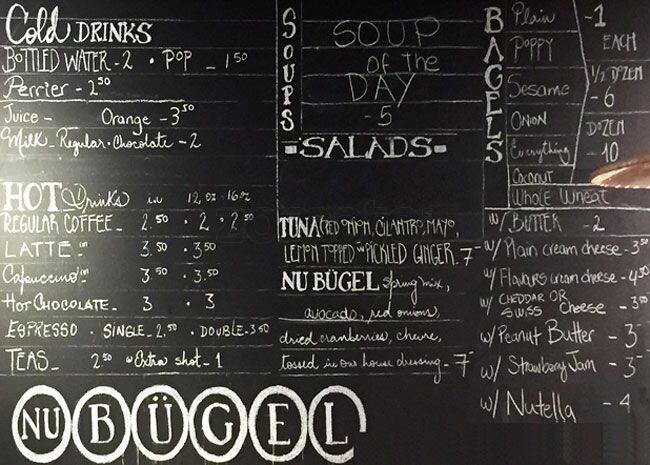 Cold DRINKS
BOTTLED WATER - 2 • POP - 1.50
Perrier - 2.50
Juice - Orange - 3.50
Milk - Regular • Chocolate - 2
HOT Drinks in 12oz • 16oz
REGULAR COFFEE - 2.50 • 2 • 2.50
LATTE - 3.50 • 3.50
Capuccino - 3.50 • 3.50
HOT CHOCOLATE - 3 • 3
ESPRESSO • SINGLE - 2.50 • DOUBLE - 3.50
TEAS - 2.50 Extra shot - 1
NU BÜGEL
SOUPS
SOUP
of the
DAY
- 5
- SALADS -
TUNA (RED ONION, CILANTRO, MAYO,
LEMON TOPPED W PICKLED GINGER. 7
NU BÜGEL spring mix,
avocado, red onions,
dried cranberries, chevre,
tossed in our house dressing - 7
BAGELS
Plain
POPPY
Sesame
ONION
Everything
Coconut
WHOLE WHEAT
- 1
EACH
1/2 DOZEN
- 6
DOZEN
- 10
w/ BUTTER - 2
w/ Plain cream cheese - 3.50
w/ Flavours cream cheese - 4.50
w/ CHEDDAR OR
SWISS Cheese - 3.50
w/ Peanut Butter - 3
w/ Strawberry Jam - 3
w/ Nutella - 4